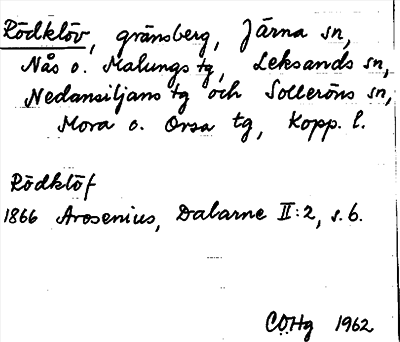 Rödklöv, gränsberg, Järna sn,
Nås o. Malungs tg, Leksands sn,
Nedansiljans tg och Solleröns sn,
Mora o. Orsa tg, Kopp. l.
Rödklöf
1866 Arosenius, Dalarne II:2, s. 6.
COHg 1962